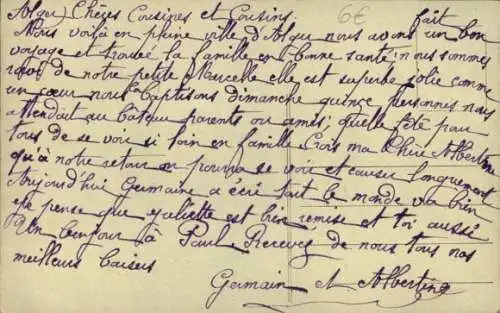 Alger Chères Cousines et Cousins 6€
Nous voilà en pleine ville d'Alger nous avons fait un bon
voyage et trouvé la famille en bonne santé; nous sommes
de notre petite Marcelle elle est superbe jolie comme
un cœur nous la baptisons dimanche quinze personnes nous
attendait au bateau parents ou amis; quelle fête pour
tous de se voir si loin en famille Crois ma Chère Albertine
qu'à notre retour on pourra se voir et causer longuement
Aujourd'hui Germaine a écri tout le monde va bien
je pense que Juliette est bien remise et toi aussi
Un bonjour à Paul Recevez de nous tous nos
meilleurs baisers
Germain et Albertine